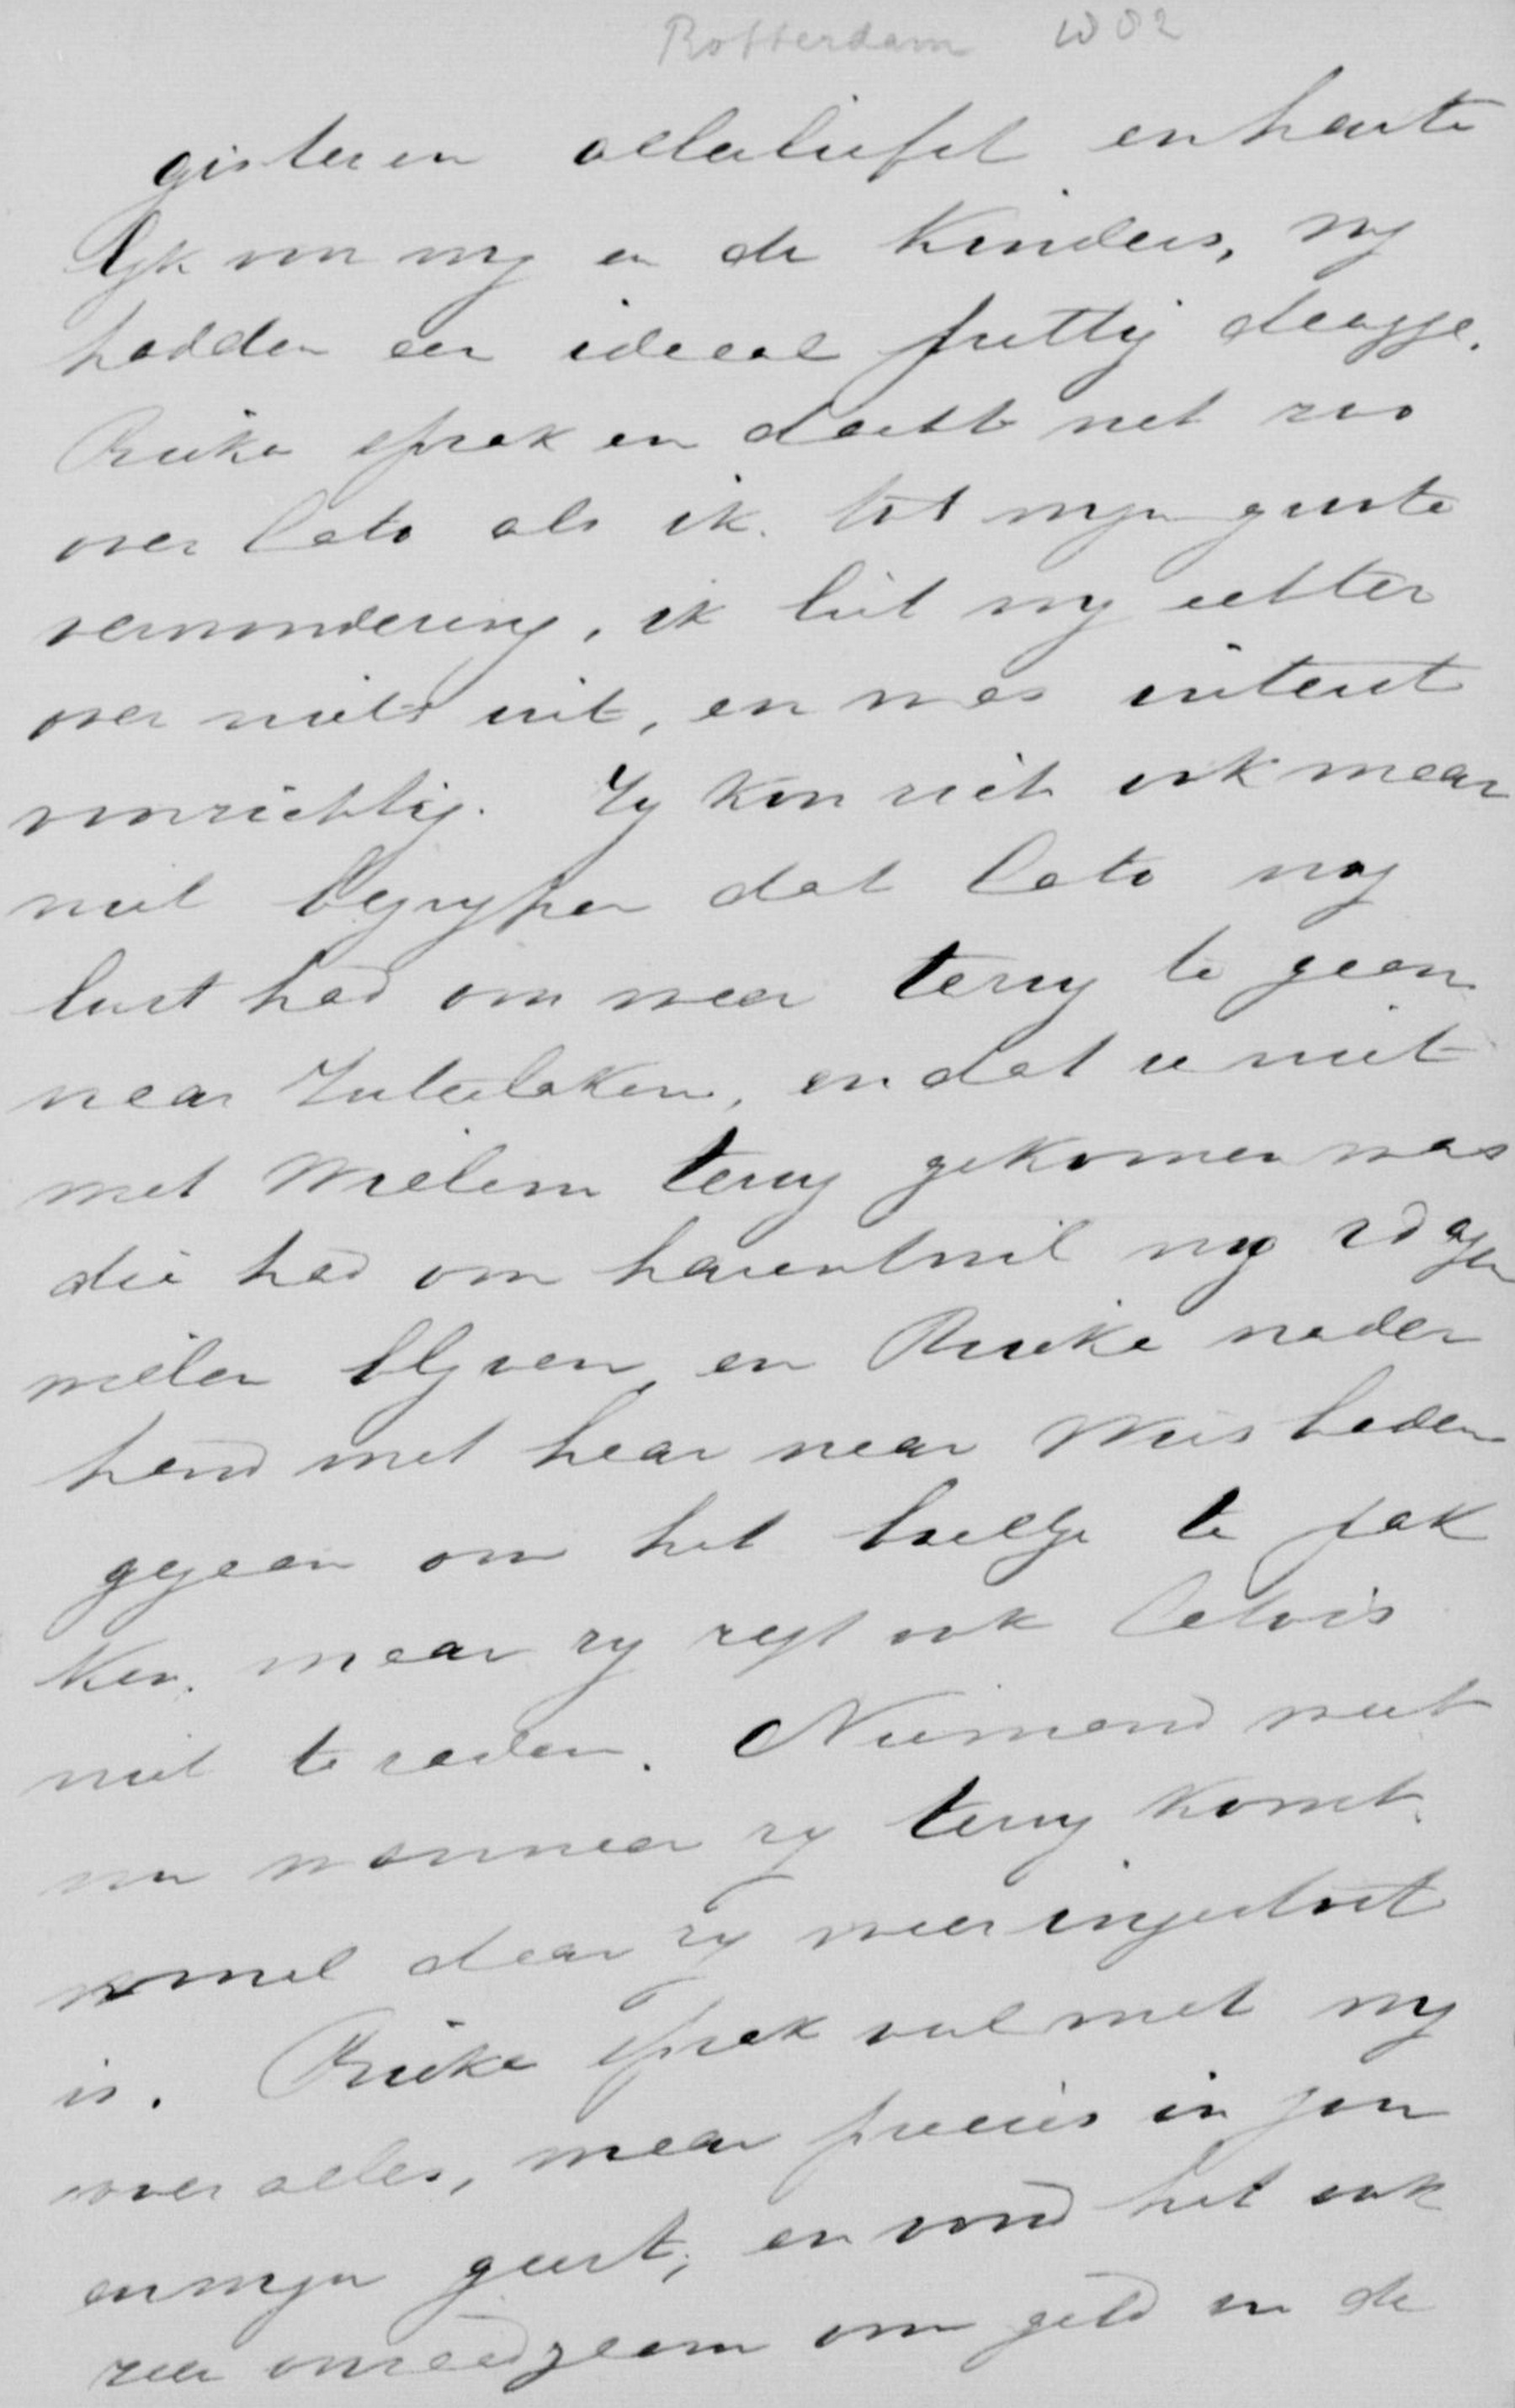 Rotterdam 1002
gisteren allerliefst en harte
lyk von my en de kinders, wy
hadden een ideaal prettig dagje.
Rieka sprak en dacht net zoo
over Cato als ik. tot myn groote
verwondering, ik liet my echter
over niets uit, en was uiterst
voorzichtig. Zy kon zich ook maar
niet begrypen dat Cato nog
lust had om weer terug te gaan
naar Interlaken, en dat ze niet
met Willem terug gekomen was
die had om harentwil nog 2 dagen
willen blyven, en Rieka nader
hand met haar naar Wiesbaden
gegaan om het boeltje te pak
ken. maar zy zegt ook Cato is
niet te raden. Niemand weet
nu wanneer zy terug komt.
wel daar zy weer ingestort
is. Rieka sprak veel met my
over alles, maar precies in jou
en myn geest, en vond het ook
zeer onraadzaam om geld in de